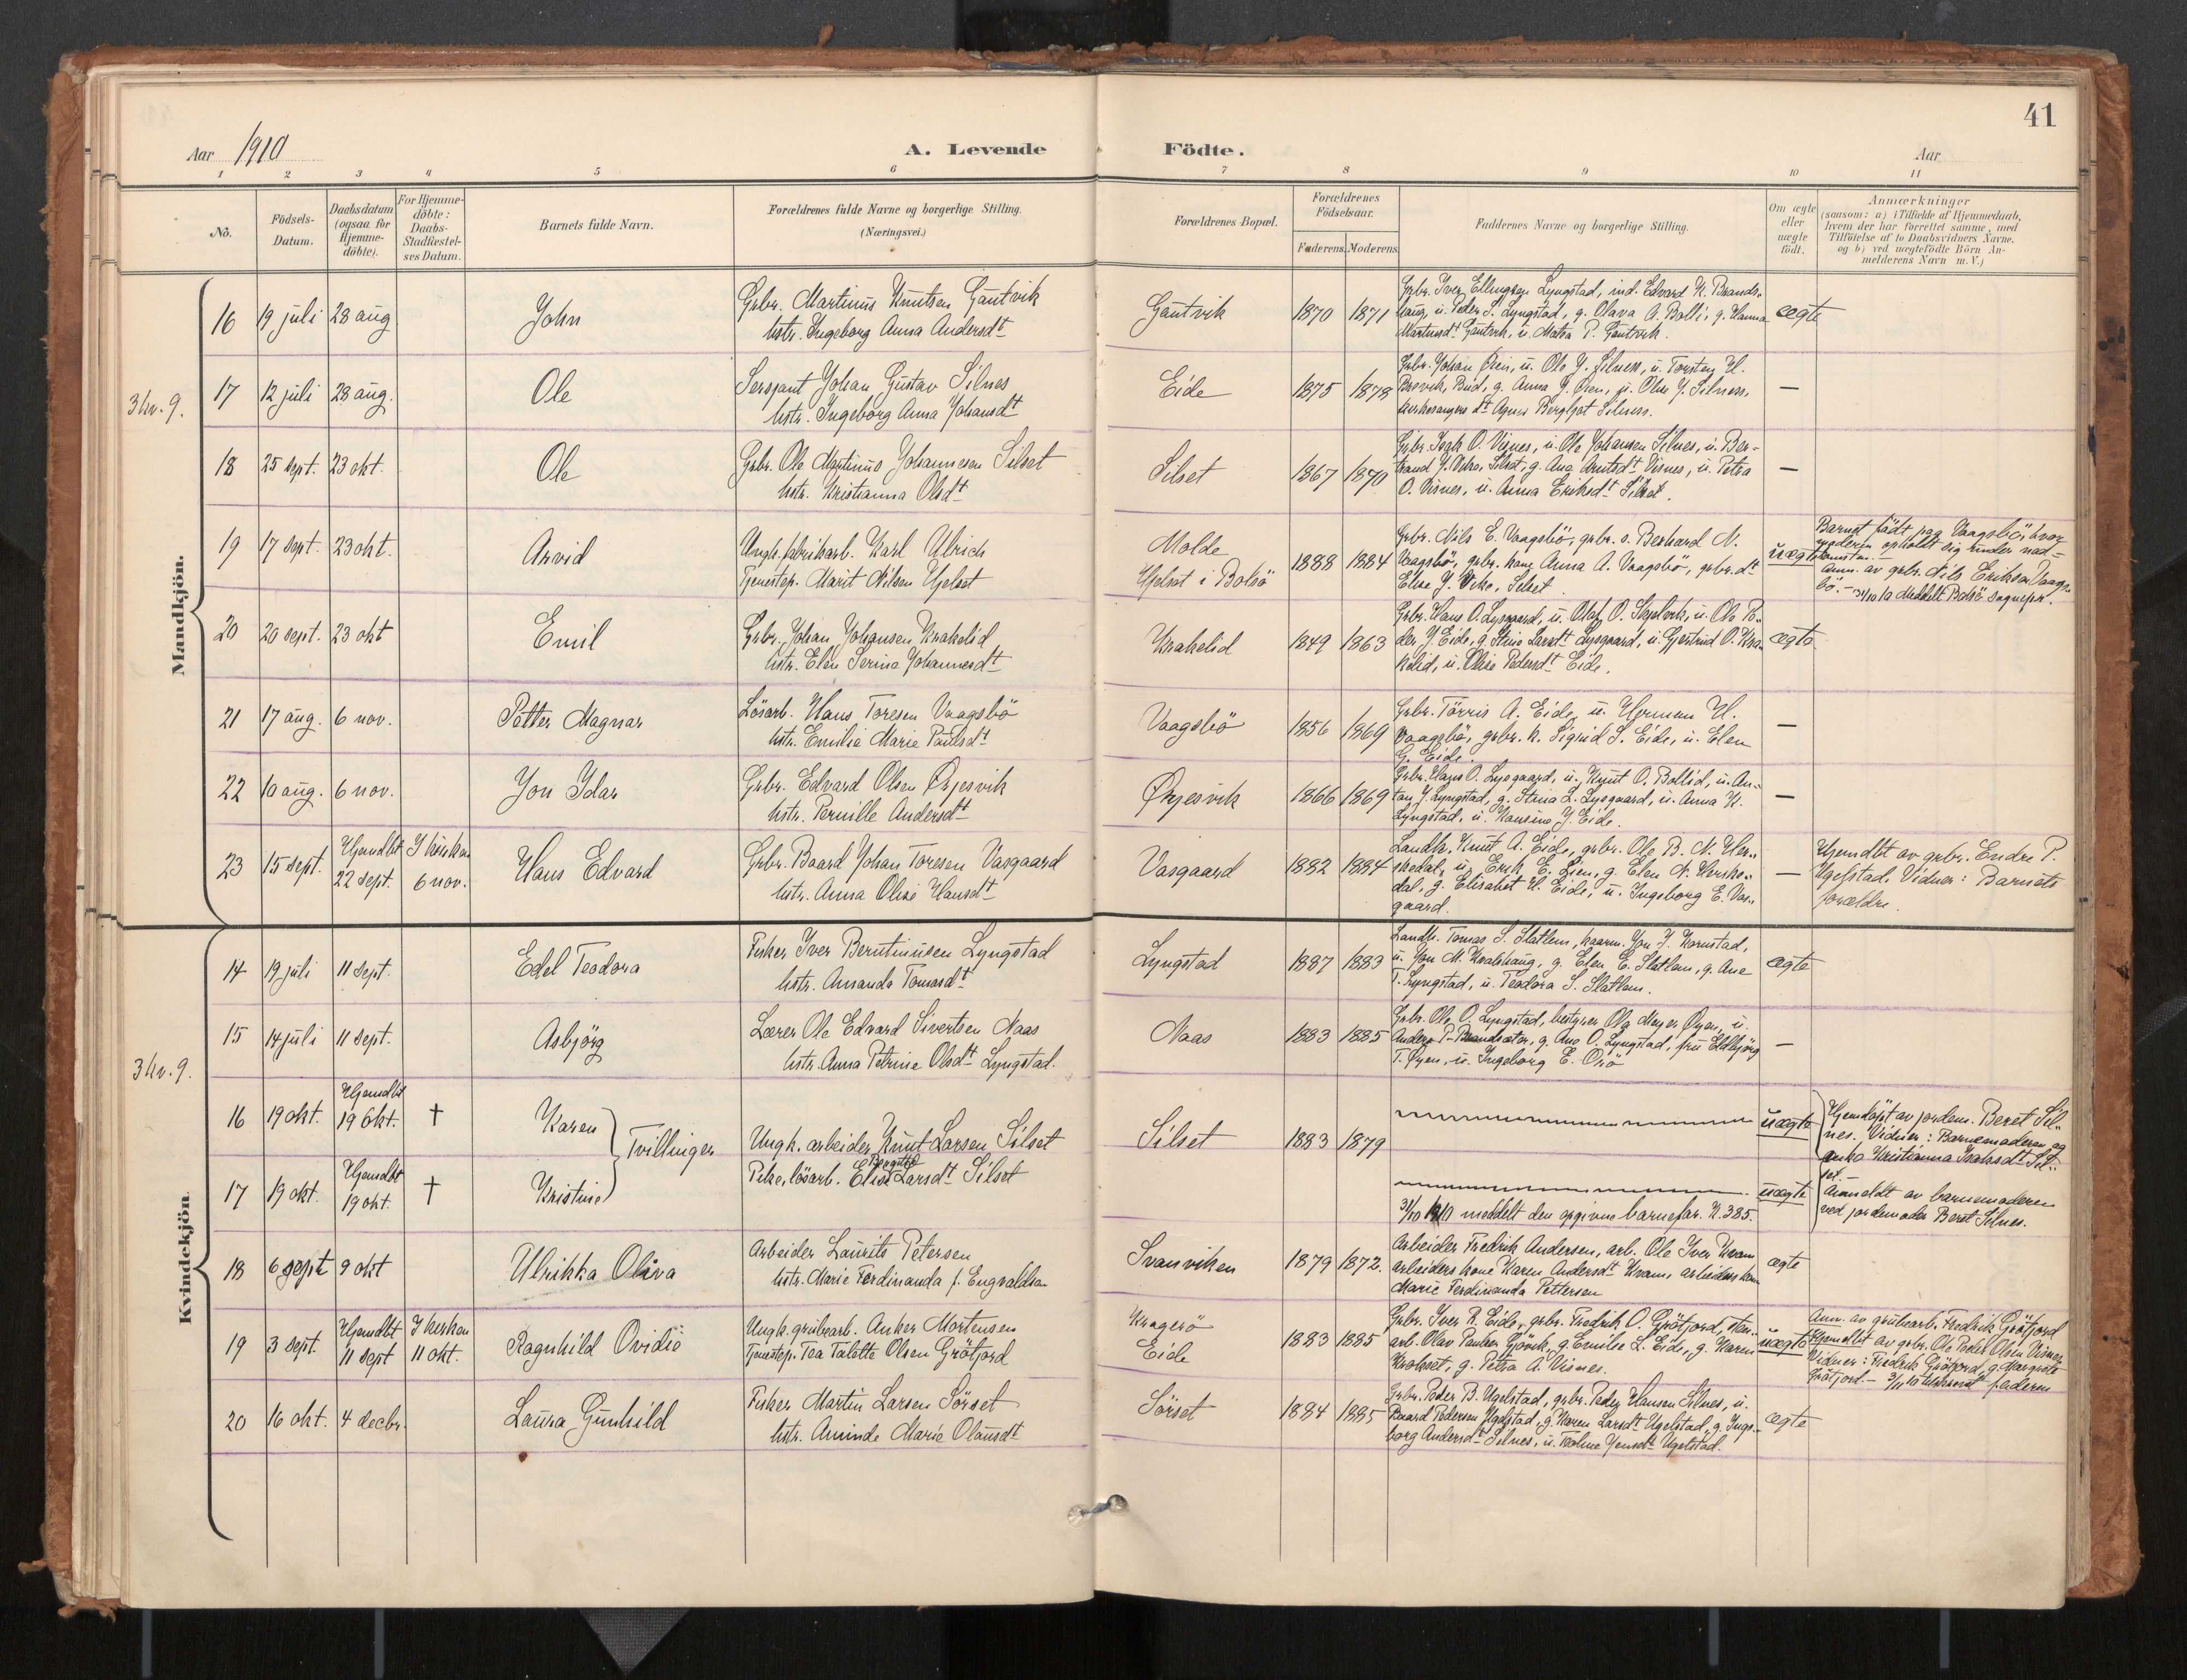 41
Aar 1910
A. Levende
Födte.
Aar
1 2 3 4 5 6 7 8 9 10 11
No.
Födsels-
Datum.
Daabsdatum
(ogsaa for
Hjemme-
döbte).
For Hjemme-
döbte:
Daabs-
Stadfæstel-
ses Datum.
Barnets fulde Navn.
Forældrenes fulde Navne og borgerlige Stilling.
(Næringsvei.)
Forældrenes Bopæl.
Forældrenes
Födselsaar.
Faderens. Moderens.
Faddernes Navne og borgerlige Stilling.
Om ægte
eller
uægte
födt.
Anmærkninger
(saasom: a) i Tilfælde af Hjemmedaab,
hvem der har forrettet samme, med
Tilföielse af to Daabsvidners Navne,
og b) ved uægtefödte Börn An-
melderens Navn m. V.)
Mandkjön.
3 kv. 9.
16 19 juli 28 aug John
Grbr. Martinus Knutsen Gautvik
hstr. Ingeborg Anna Andersdt
Gautvik 1870 1871
Grbr. Iver Ellingsen Lyngstad, ind. Edvard K. Brands-
haug, u. Peder S. Lyngstad, g. Olava A. Bolli, g. Hanna
Martinsdt Gautvik, u. Matea P. Gautvik.
ægte
17 12 juli 28 aug. Ole
Sersjant Johan Gustav Silnes
hstr. Ingeborg Anna Johansdt
Eide 1875 1878
Grbr. Johan Öien, u. Ole J. Silnes, u. Torsten H.
Brevik, Bud, g. Anna G. Öien, u. Oline J. Silnes,
kirkesangers dt Agnes Bergljot Silnes.
—
18 25 sept. 23 okt. Ole
Grbr. Ole Martinus Johannesen Silset
hstr. Kristianna Olsdt
Silset 1867 1870
Grbr. Isak O. Visnes, u. Ole Johansen Silnes, u. Ber-
trand J. Vike, Silset, g. Ane Knutsdt Visnes, u. Petra
O. Visnes, u. Anna Eriksdt Silset.
—
19 17 sept. 23 okt. Arvid
Ungk. fabrikarb. Karl Ulrich
Tjenestep. Marit Nilsen Hjelset
Molde
Hjelset i Bolsö
1888 1884
Grbr. Nils E. Vaagsbö, grbr. s. Berhard N.
Vaagsbö, grbr. kone Anna A. Vaagsbö, grbr. dt
Elise J. Vike, Silset.
uægte
Barnet födt paa Vaagsbö, hvor
moderen opholdt sig under ned-
komsten.—
Anm. av grbr. Nils Eriksen Vaags-
bö. — 31/10 10 Meddelt Bolsö sognepr.
20 20 sept. 23 okt Emil
Grbr. Johan Johansen Krakelid
hstr. Elen Serina Johannesdt
Krakelid 1849 1863
Grbr. Hans O. Lysgaard, u. Olaf O. Skjelvik, u. Ole Pe-
der J. Eide, g. Stina Larsdt Lysgaard, u. Gjertrud O. Kra-
kelid, u. Elise Pedersdt Eide.
ægte
21 17 aug. 6 nov. Petter Magnar
Lösarb. Hans Toresen Vaagsbö
hstr. Emilie Marie Paulsdt
Vaagsbö 1856 1869
Grbr. Törris A. Eide, u. Herman H.
Vaagsbö, grbr. k. Sigrid S. Eide, u. Elen
G. Eide.
—
22 10 aug. 6 nov. Jon Idar
Grbr. Edvard Olsen Örjesvik
hstr. Pernille Andersdt
Örjesvik 1866 1869
Grbr. Hans O. Lysgaard, u. Knut O. Bollid, u. An-
ton J. Lyngstad, g. Stina L. Lysgaard, u. Anna K.
Lyngstad, u. Hansine J. Eide.
—
23 15 sept. Hjemdbt 22 sept. I kirken 6 nov. Hans Edvard
Grbr. Baard Johan Toresen Vasgaard
hstr. Anna Olise Hansdt
Vasgaard 1882 1884
Landh. Knut A. Eide, grbr. Ole B. N. Her-
skedal, u. Erik E. Lien, g. Elen N. Herske-
dal, g. Elisabet H. Eide, u. Ingeborg E. Vas-
gaard.
—
Hjemdbt av grbr. Endre P.
Ugelstad. Vidner: Barnets
forældre.
Kvindekjön.
3 kv. 9.
14 19 juli 11 sept. Edel Teodora
Fisker Iver Berntinusen Lyngstad
hstr. Amanda Tomasdt
Lyngstad 1887 1883
Landh. Tomas S. Slatlem, kaarm. Jon J. Kornstad,
u. Jon M. Kvalshaug, g. Elen E. Slatlem, g. Ane
T. Lyngstad, u. Teodora S. Slatlem.
ægte
15 14 juli 11 sept. Asbjörg
Lærer Ole Edvard Sivertsen Naas
hstr. Anna Petrine Olsdt Lyngstad.
Naas 1883 1885
Grbr. Ole O. Lyngstad, bestyrer Ola Meyer Öyen, u.
Anders P. Brandsæter, g. Ane O. Lyngstad, fru Eldbjörg
T. Öyen, u. Ingeborg E. Orö
—
16 19 okt. Hjemdbt 19 okt. † Karen
Tvillinger
17 19 okt. Hjemdbt 19 okt. † Kristine
Ungk. arbeider Knut Larsen Silset
Pike, lösarb. Elise Larsdt Silset
Bergitte
Silset 1883 1879
uægte
uægte
31/10 1910 meddelt den opgivne barnefar. K. 385.
Hjemdöpt av jordem. Beret Sil-
nes. Vidner: Barnemoderen og
enke Kristianna Isaksdt Sil-
set.—
Anmeldt av barnemoderen
ved jordemoder Beret Silnes.
18 6 sept 9 okt Ulrikka Oliva
Arbeider Laurits Petersen
hstr. Marie Ferdinanda f. Engvaldsen
Svanviken 1879 1872.
Arbeider Fredrik Andersen, arb. Ole Iver Kvam
arbeiders kone Karen Andersdt Kvam, arbeiders kone
Marie Ferdinanda Pettersen
ægte
19 3 sept. Hjemdbt 11 sept I kirken 11 okt. Ragnhild Ovidie
Ungk. grubearb. Anker Mortensen
Tjenestep. Tea Talette Olsen Gröfjord
Kragerö
Eide
1883 1885
Grbr. Iver R. Eide, grbr. Fredrik O. Gröfjord, sten-
arb. Olav Panker Gjövik, g. Emilie L. Eide, g. Karen
Krokset, g. Petra A. Visnes.
uægte
Anm. av grubearb. Fredrik Gröfjord
Hjemdbt av grbr. Ole Peder Olsen Visnes
Vidner: Fredrik Gröfjord, g. Margrete
Gröfjord. — 3/11 10 tilskrevet faderen
20 16 okt. 4 decbr. Laura Gunhild
Fisker Martin Larsen Sörset
hstr. Aminde Marie Olausdt
Sörset 1884 1885
Grbr. Peder B. Ugelstad, grbr. Peder Hansen Silnes, u.
Baard Pedersen Ugelstad, g. Karen Larsdt Ugelstad, g. Inge-
borg Andersdt Silnes, u. Teoline Jensdt Ugelstad.
ægte